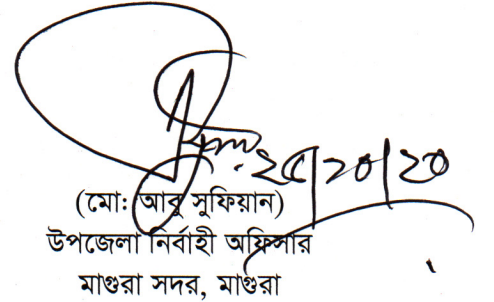 ২৫/১০/২০
(মো: আবু সুফিয়ান)
উপজেলা নির্বাহী অফিসার
মাগুরা সদর, মাগুরা